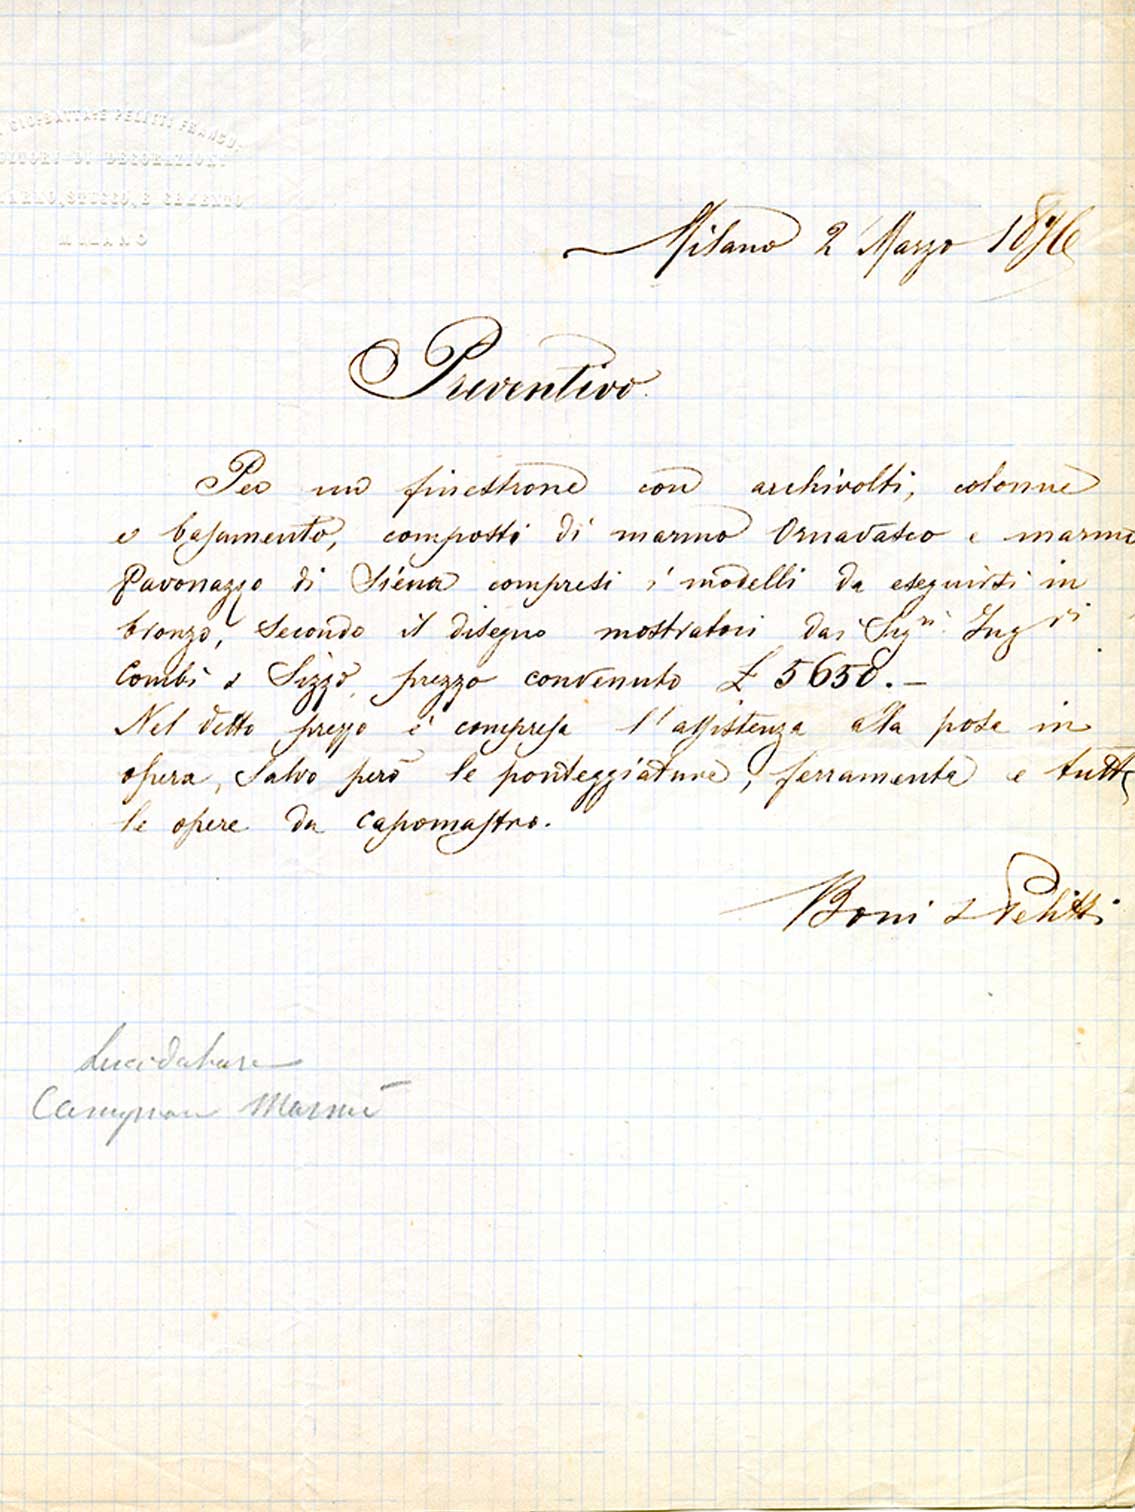 GIO. BATTA E PELITTI FRANC.
DI DECORAZIONI
STUCCO, E CEMENTO
MILANO
Milano 2 Marzo 1876
Preventivo.
Per un finestrone con archivolti, colonne
e basamento, composti di marmo Ornavasco e marmo
Pavonazzo di Siena compresi i modelli da eseguirsi in
bronzo, secondo il disegno mostratoci dai Sig.ri Ing.ri
Combi & Sizzo, prezzo convenuto £ 5650.-
Nel detto prezzo è compresa l'assistenza alla posa in
opera, salvo però le ponteggiature, ferramenta e tutte
le opere da Capomastro.
Boni & Pelitti
Lucidature
Campion Marmi